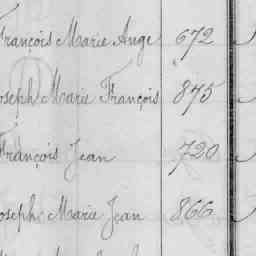 François Marie Ange 672
Joseph Marie François 875
François Jean 720
Joseph Marie Jean 866